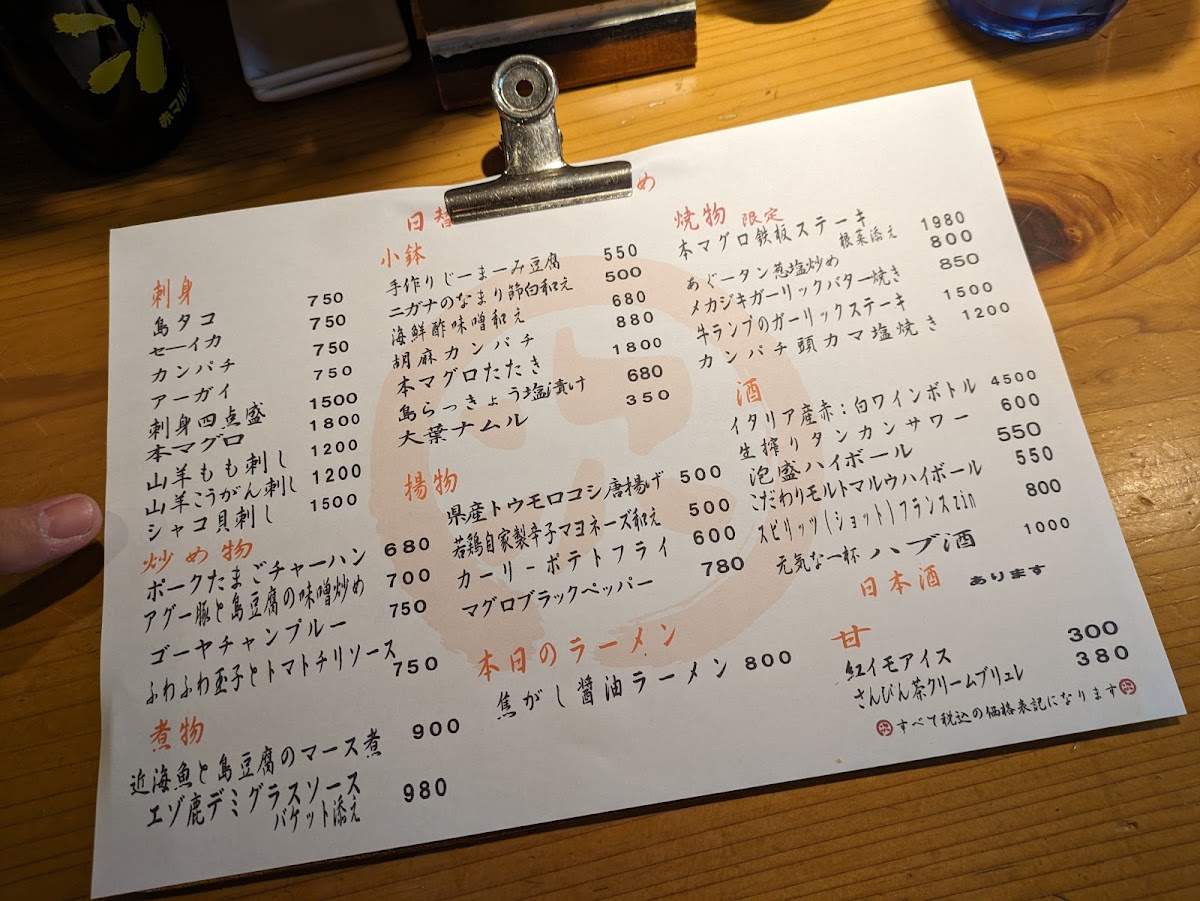 日替 め
刺身
島タコ 750
セーイカ 750
カンパチ 750
アーガイ 750
刺身四点盛 1500
本マグロ 1800
山羊もも刺し 1200
山羊こうがん刺し 1200
シャコ貝刺し 1500
炒め物
ポークたまごチャーハン 680
アグー豚と島豆腐の味噌炒め 700
ゴーヤチャンプルー 750
ふわふわ玉子とトマトチリソース 750
煮物
近海魚と島豆腐のマース煮 900
エゾ鹿デミグラスソース 980
バケット添え
小鉢
手作りじーまーみ豆腐 550
ニガナのなまり節白和え 500
海鮮酢味噌和え 680
胡麻カンパチ 880
本マグロたたき 1800
島らっきょう塩漬け 680
大葉ナムル 350
揚物
県産トウモロコシ唐揚げ 500
若鶏自家製辛子マヨネーズ和え 500
カーリーポテトフライ 600
マグロブラックペッパー 780
本日のラーメン
焦がし醤油ラーメン 800
焼物 限定
本マグロ鉄板ステーキ 1980
根菜添え
あぐータン葱塩炒め 800
メカジキガーリックバター焼き 850
牛ランプのガーリックステーキ 1500
カンパチ頭カマ塩焼き 1200
酒
イタリア産赤:白ワインボトル 4500
生搾りタンカンサワー 600
泡盛ハイボール 550
こだわりモルトマルウハイボール 550
スピリッツ(ショット)フランスzin 800
元気な一杯 ハブ酒 1000
日本酒 あります
甘
紅イモアイス 300
さんぴん茶クリームブリュレ 380
すべて税込の価格表記になります